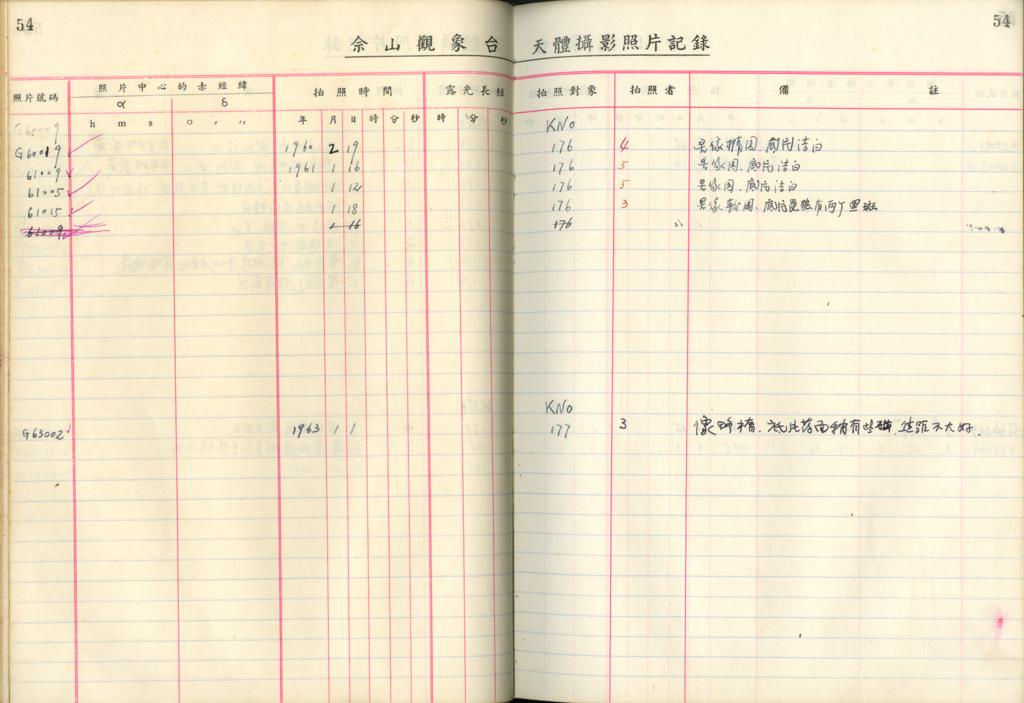 54
54
佘山觀象台 天體攝影照片記錄
照片號碼 照片中心的赤經緯 拍照時間 露光長短 拍照對象 拍照者 備註
α δ
h m s ° ′ ″ 年 月 日 時 分 秒 時 分 秒
G60009 KNo
G60019 1960 2 19 176 4 星像橢圓.底片洁白
61009 1961 1 16 176 5 星像圆.底片洁白
61005 1 12 176 5 星像圆.底片洁白
61015 1 18 176 3 星像較圆.底片 有两个黑斑
61009 1 16 176
KNo
G63002 1963 1 1 177 3 像 稍有些 不大好.